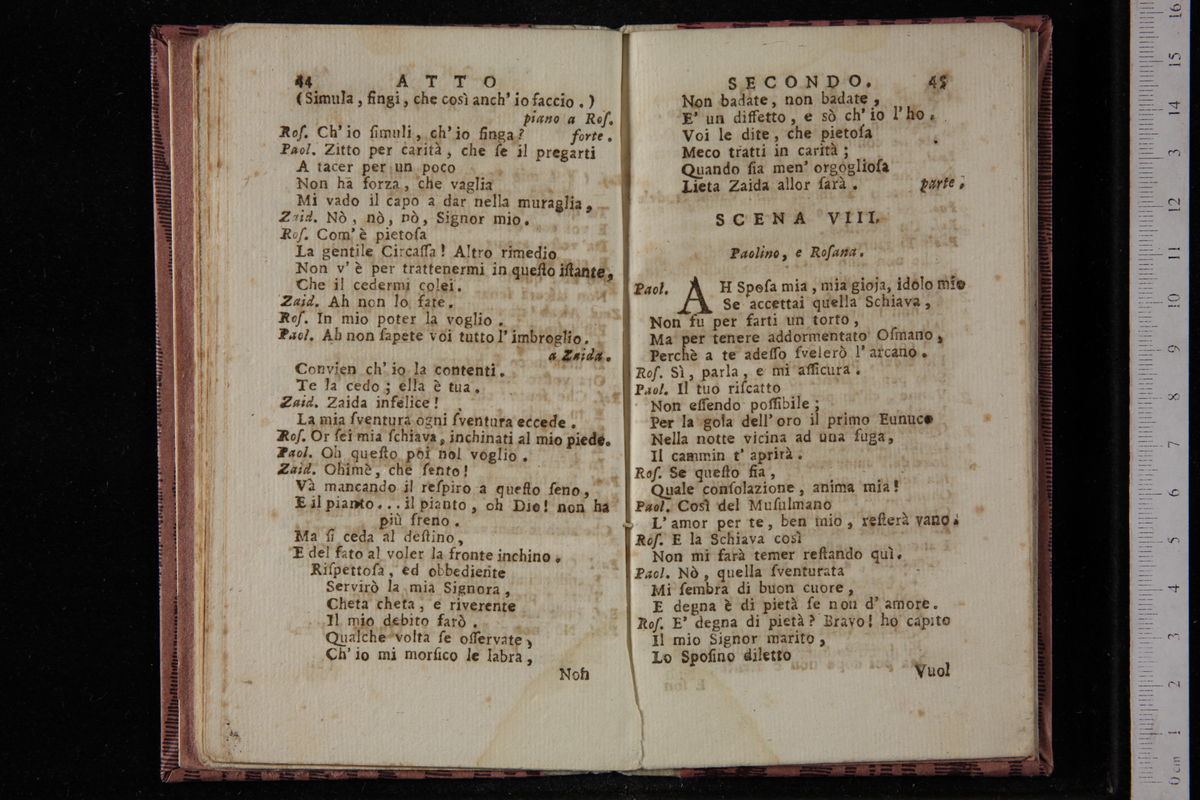 44 ATTO
(Simula, fingi, che così anch' io faccio.)
piano a Roſ.
Roſ. Ch' io ſimuli, ch' io finga? forte.
Paol. Zitto per carità, che ſe il pregarti
A tacer per un poco
Non ha forza, che vaglia
Mi vado il capo a dar nella muraglia,
Zaid. Nò, nò, nò, Signor mio.
Roſ. Com' è pietoſa
La gentile Circaſſa! Altro rimedio
Non v' è per trattenermi in queſto iſtante,
Che il cedermi colei.
Zaid. Ah non lo fate.
Roſ. In mio poter la voglio.
Paol. Ah non ſapete voi tutto l' imbroglio.
a Zaida.
Convien ch' io la contenti.
Te la cedo; ella è tua.
Zaid. Zaida infelice!
La mia ſventura ogni ſventura eccede.
Roſ. Or ſei mia ſchiava, inchinati al mio piede.
Paol. Oh queſto poi nol voglio.
Zaid. Ohimè, che ſento!
Và mancando il reſpiro a queſto ſeno,
E il pianto... il pianto, oh Dio! non ha
più freno.
Ma ſi ceda al deſtino,
E del fato al voler la fronte inchino.
Riſpettoſa, ed obbediente
Servirò la mia Signora,
Cheta cheta, e riverente
Il mio debito farò.
Qualche volta ſe oſſervate,
Ch' io mi morſico le labra,
Non
SECONDO. 45
Non badate, non badate,
E' un diffetto, e sò ch' io l' ho.
Voi le dite, che pietoſa
Meco tratti in carità;
Quando ſia men' orgoglioſa
Lieta Zaida allor ſarà. parte.
SCENA VIII.
Paolino, e Roſana.
Paol. AH Spoſa mia, mia gioja, idolo mio
Se accettai quella Schiava,
Non fu per farti un torto,
Ma per tenere addormentato Oſmano,
Perchè a te adeſſo ſvelerò l' arcano.
Roſ. Sì, parla, e mi aſſicura.
Paol. Il tuo riſcatto
Non eſſendo poſſibile;
Per la gola dell' oro il primo Eunuco
Nella notte vicina ad una fuga,
Il cammin t' aprirà.
Roſ. Se queſto ſia,
Quale conſolazione, anima mia!
Paol. Così del Muſulmano
L' amor per te, ben mio, reſterà vano.
Roſ. E la Schiava così
Non mi farà temer reſtando quì.
Paol. Nò, quella ſventurata
Mi ſembra di buon cuore,
E degna è di pietà ſe non d' amore.
Roſ. E' degna di pietà? Bravo! ho capito
Il mio Signor marito,
Lo Spoſino diletto
Vuol